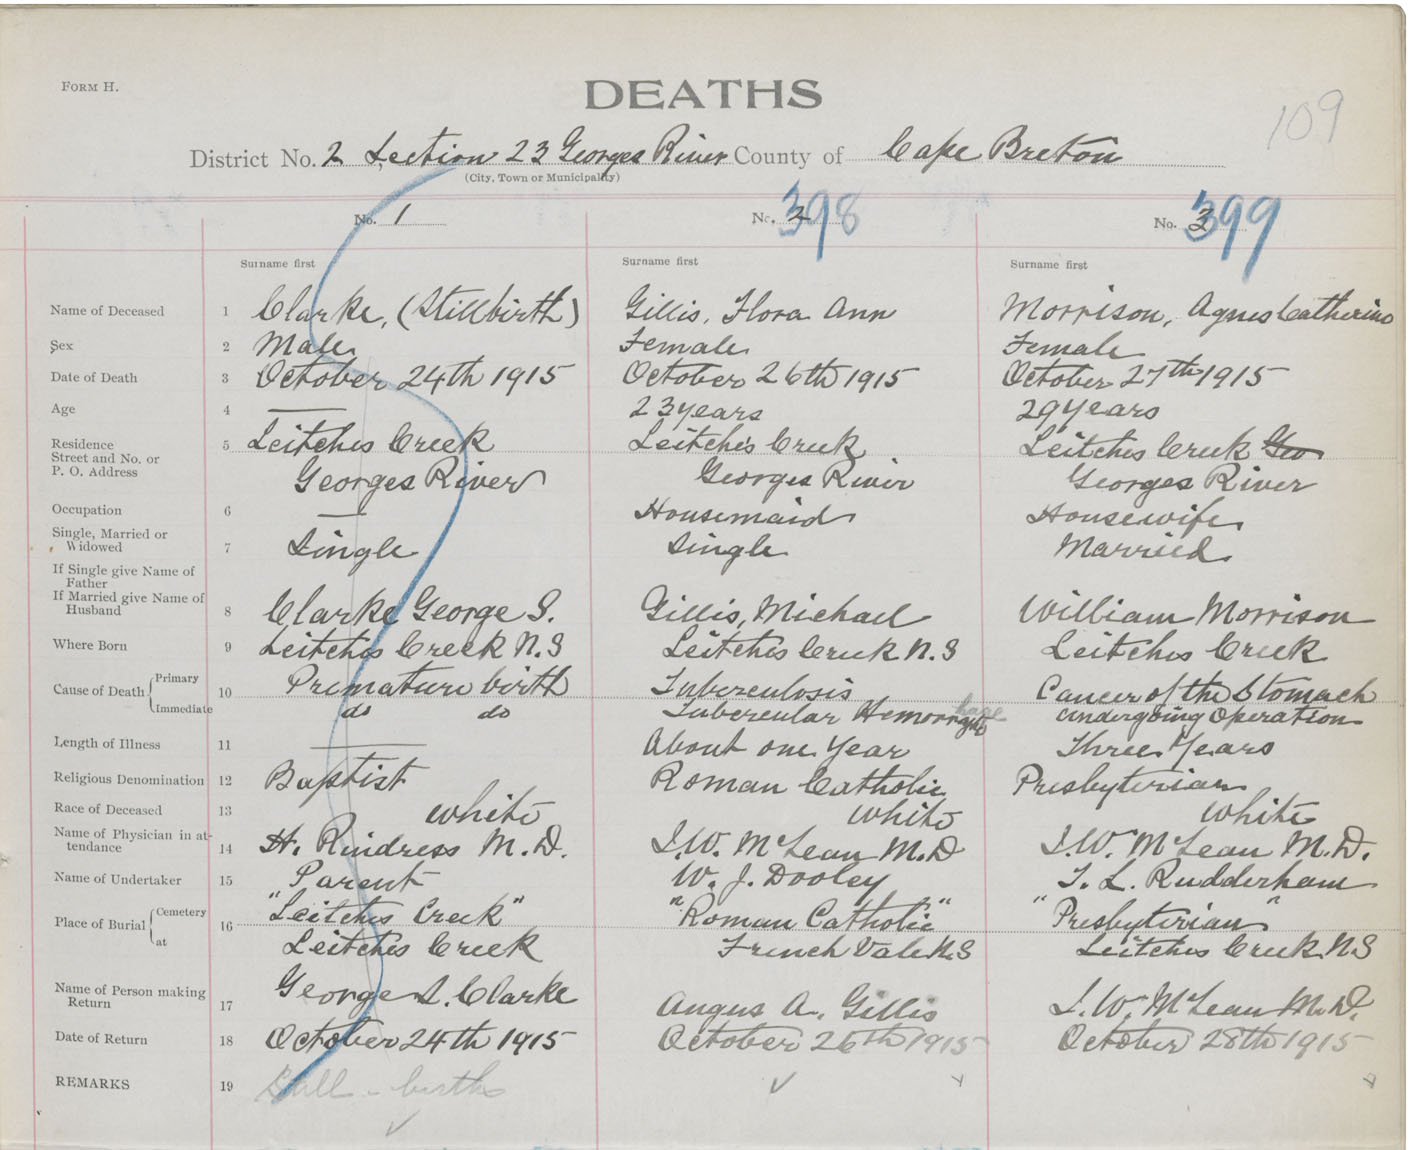 FORM H.
DEATHS
109
District No. 2 Section 23 Georges River County of Cape Breton
(City, Town or Municipality)
No. 1 No. 2 398 No. 3 399
Surname first Surname first Surname first
Name of Deceased 1 Clarke, (Stillbirth) Gillis, Flora Ann Morrison, Agnes Catherine
Sex 2 Male Female Female
Date of Death 3 October 24th 1915 October 26th 1915 October 27th 1915
Age 4 — 23 years 29 years
Residence 5 Leitches Creek Leitches Creek Leitches Creek Geo
Street and No. or
P. O. Address Georges River Georges River Georges River
Occupation 6 — Housemaid Housewife
Single, Married or
Widowed 7 Single Single Married
If Single give Name of
Father
If Married give Name of
Husband 8 Clarke George S. Gillis, Michael William Morrison
Where Born 9 Leitches Creek N.S Leitches Creek N.S Leitches Creek
Cause of Death { Primary 10 Premature birth Tuberculosis Cancer of the Stomach
Immediate do do Tubercular Hemorrhage undergoing Operation
Length of Illness 11 — About one Year Three Years
Religious Denomination 12 Baptist Roman Catholic Presbyterian
Race of Deceased 13 white white white
Name of Physician in at-
tendance 14 H. Rindress M.D. J.W. McLean M.D J.W. McLean M.D.
Name of Undertaker 15 Parent W. J. Dooley T. L. Rudderham
Place of Burial { Cemetery 16 "Leitches Creek" "Roman Catholic" "Presbyterian"
at Leitches Creek French Vale N.S Leitches Creek N.S
Name of Person making
Return 17 George S. Clarke Angus A. Gillis J.W. McLean M.D.
Date of Return 18 October 24th 1915 October 26th 1915 October 28th 1915
REMARKS 19 Still-births